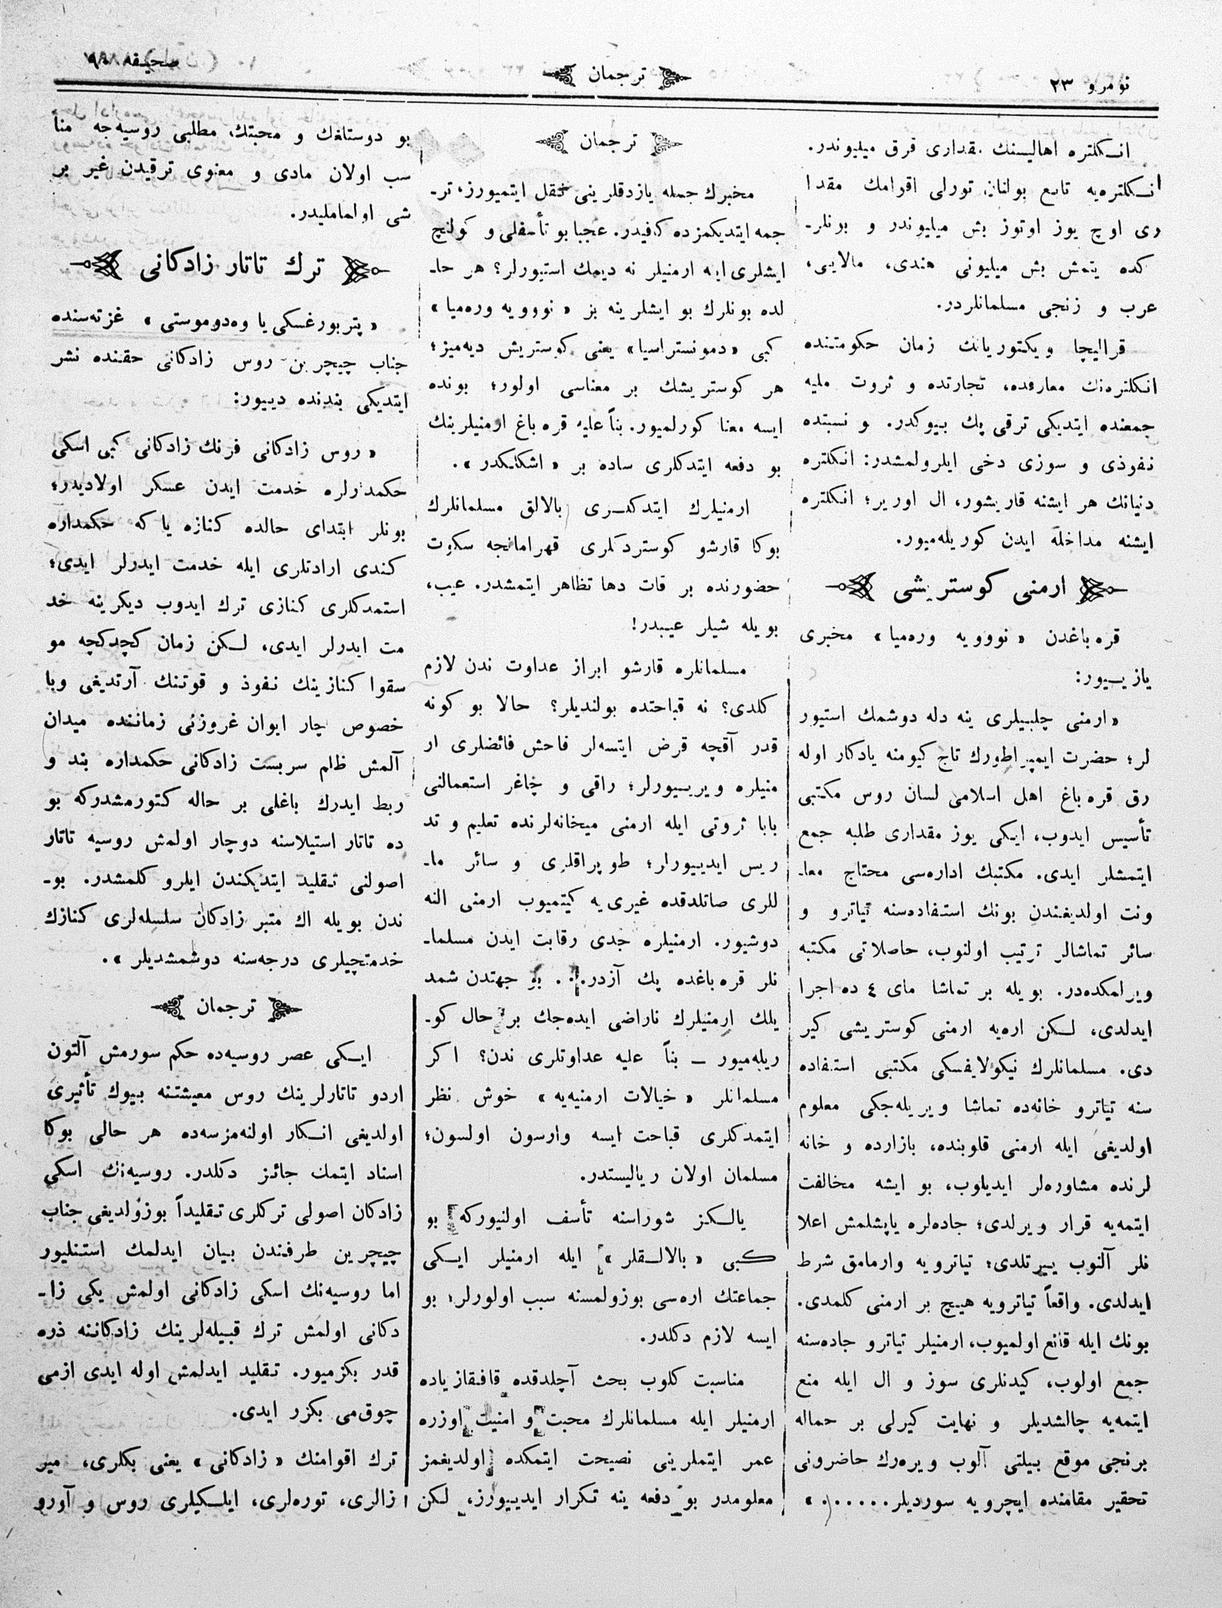 نومرو ٢٣
ترجمان
صحیفه
انـكلتره اهالیسنك مقداری قرق میلیوندر.
انـكلتره‌یه تابع بولنان تورلی اقوامك مقدا
ری اوچ یوز اوتوز بش میلیوندر و بونلرـ
كده یتمش بش میلیونی هندی، مالایی،
عرب و زنجی مسلمانلردر.
قرالیچا ویكتوریانك زمان حكومتنده
انكلتره‌نك معارفده، تجارتده و ثروت ملیه
جمعنده ایتدیكی ترقی پك بیوكدر. و نسبتده
نفوذی و سوزی دخی ایلرولمشدر: انكلتره
دنیانك هر ایشنه قاریشور، ال اوریر؛ انكلتره
ایشنه مداخله ایدن كوریله‌میور.
ارمنی كوستریشی
قره باغدن «نوویه وره‌میا» مخبری
یازیــیور:
«ارمنی چلبیلری ینه دله دوشمك استیور
لر؛ حضرت ایمپراطورك تاج كیومنه یادكار اوله
رق قره باغ اهل اسلامی لسان روس مكتبی
تأسیس ایدوب، ایكی یوز مقداری طلبه جمع
ایتمشلر ایدی. مكتبك اداره‌سی محتاج معاـ
ونت اولدیغندن بونك استفاده‌سنه تیاترو و
سائر تماشالر ترتیب اولنوب، حاصلاتی مكتبه
ویرامكده‌در. بویله بر تماشا مای ٤ ده اجرا
ایدلدی، لـكن اره‌یه ارمنی كوستریشی كیر
دی. مسلمانلرك نیكولایفسكی مكتبی استفاده
سنه تیاترو خانه‌ده تماشا ویریله‌جكی معلوم
اولدیغی ایله ارمنی قلوبنده، بازارده و خانه
لرنده مشاوره‌لر ایدیلوب، بو ایشه مخالفت
ایتمه‌یه قرار ویرلدی؛ جاده‌لره یاپشلمش اعلا
نلر آلنوب ییرتلدی؛ تیاترویه وارمامق شرط
ایدلدی. واقعاً تیاترویه هیچ بر ارمنی كلمدی.
بونك ایله قانع اولمیوب، ارمنیلر تیاترو جاده‌سنه
جمع اولوب، كیدنلری سوز و ال ایله منع
ایتمه‌یه چالشدیلر و نهایت كیرلی بر حماله
برنجی موقع بیلتی آلوب ویره‌رك حاضرونی
تحقیر مقامنده ایچرویه سوردیلر......»
ترجمان
مخبرك جمله یازدقلرینی نقل ایتمیورز، ترـ
جمه ایتدیكمزده كافیدر. عجبا بو تأسفلی و كولنج
ایشلری ایله ارمنیلر نه دیمك استیورلر؟ هر حاـ
لده بونلرك بو ایشلرینه بز «نوویه وره‌میا»
كبی «دمونستراسیا» یعنی كوستریش دیه‌میز؛
هر كوستریشك بر معناسی اولور؛ بونده
ایسه معنا كورلمیور. بناً علیه قره باغ ارمنیلرینك
بو دفعه ایتدكلری ساده بر «اشكلكدر».
ارمنیلرك ایتدكلری بالالق مسلمانلرك
بوكا قارشو كوستردكلری قهرمانجه سكوت
حضورنده بر قات دها تظاهر ایتمشدر. عیب،
بویله شیلر عیبدر!
مسلمانلره قارشو ابراز عداوت ندن لازم
كلدی؟ نه قباحتده بولندیلر؟ حالا بو كونه
قدر آقچه قرض ایتسه‌لر فاحش فائضلری ار
منیلره ویریـیورلر؛ راقی و چاغر استعمالنی
بابا ثروتی ایله ارمنی میخانه‌لرنده تعلیم و تد
ریس ایدییورلر؛ طوپراقلری و سائر ماـ
للری صاتلدقده غیری‌یه كیتمیوب ارمنی النه
دوشیور. ارمنیلره جدی رقابت ایدن مسلماـ
نلر قره باغده پك آزدر... بو جهتدن شمد
یلك ارمنیلرك ناراضی ایده‌جك بر حال كوـ
ریله‌میور ــ بناً علیه عداوتلری ندن؟ اكر
مسلمانلر «خیالات ارمنیه‌یه» خوش نظر
ایتمدكلری قباحت ایسه وارسون اولسون؛
مسلمان اولان ریالیستدر.
یالـكز شوراسنه تأسف اولنیوركه بو
كبی «بالالـقلر» ایله ارمنیلر ایـكی
جماعتك اره‌سی بوزولمسنه سبب اولورلر؛ بو
ایسه لازم دكلدر.
مناسبت كلوب بحث آچلدقده قافقازیاده
ارمنیلر ایله مسلمانلرك محبت و امنیت اوزره
عمر ایتملرینی نصیحت ایتمكده اولدیغمز
معلومدر بو دفعه ینه تكرار ایدییورز، لكن
بو دوستلغك و محبتك، مطلبی روسیه‌جه منا
سب اولان مادی و معنوی ترقیدن غیر بر
شی اولماملیدر.
ترك تاتار زادكانی
«پتربورغسكی یا وه‌دوموستی» غزته‌سنده
جناب چیچرین روس زادكانی حقنده نشر
ایتدیكی بندنده دییور:
«روس زادكانی فرنك زادكانی كبی اسكی
حكمدارلره خدمت ایدن عسكر اولادیدر؛
بونلر ابتدای حالده كنازه یا كه حكمداره
كندی ارادتلری ایله خدمت ایدرلر ایدی؛
استمدكلری كنازی ترك ایدوب دیكرینه خد
مت ایدرلر ایدی، لـكن زمان كچدكچه مو
سقوا كنازینك نفوذ و قوتنك آرتدیغی وبا
خصوص چار ایوان غروزنی زماننده میدان
آلمش ظلم سربست زادكانی حكمداره بند و
ربط ایدرك باغلی بر حاله كتورمشدركه بو
ده تاتار استیلاسنه دوچار اولمش روسیه تاتار
اصولنی تقلید ایتدیكندن ایلرو كلمشدر. بوـ
ندن بویله اك متبر زادكان سلسله‌لری كنازك
خدمتچیلری درجه‌سنه دوشمشدیلر».
ترجمان
ایـكی عصر روسیه‌ده حكم سورمش آلتون
اردو تاتارلرینك روس معیشتنه بیوك تأثیری
اولدیغی انـكار اولنه‌مزسه‌ده هر حالی بوكا
اسناد ایتمك جائز دكلدر. روسیه‌نك اسكی
زادكان اصولی تركلری تقلیداً بوزولدیغی جناب
چیچرین طرفندن بیان ایدلمك استنلیور
اما روسیه‌نك اسكی زادكانی اولمش یكی زاـ
دكانی اولمش ترك قبیله‌لرینك زادكاننه ذره
قدر بكزمیور. تقلید ایدلمش اوله ایدی ازمی
چوق‌می بكزر ایدی.
ترك اقوامنك «زادكانی» یعنی بكلری، میر
زالری، توره‌لری، ایلـكیلری روس و آورو